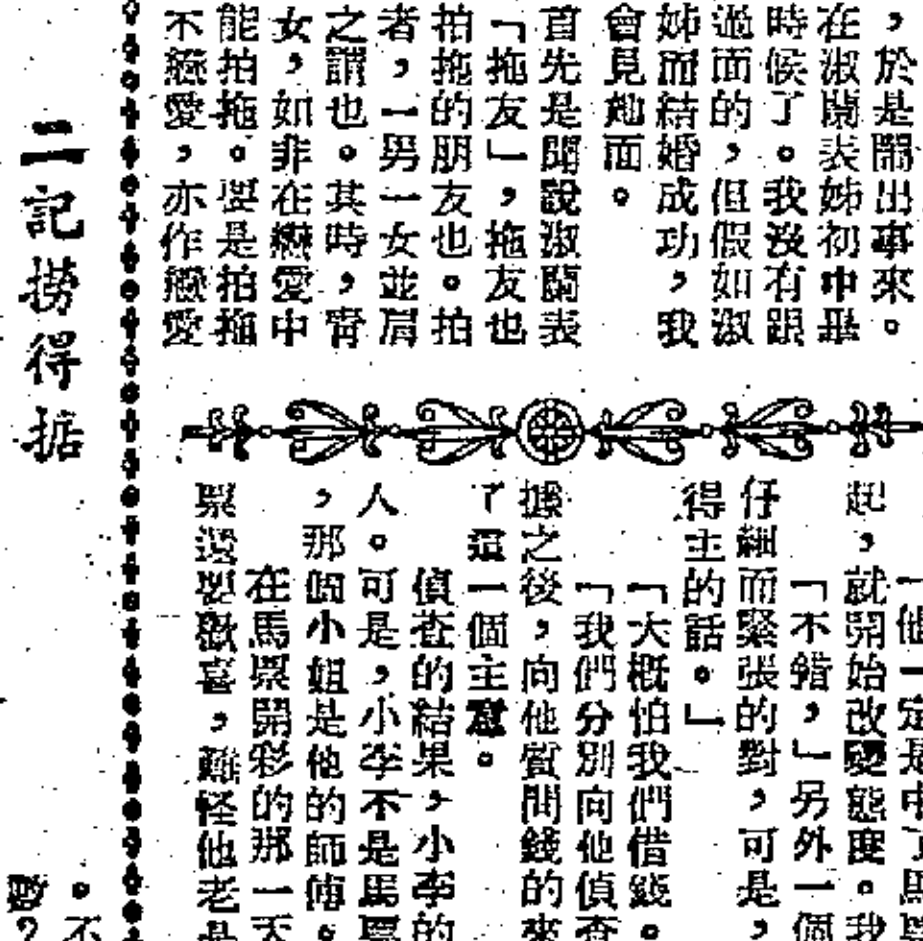 ，於是鬧出事來。
在淑蘭表姊初中畢
時候了。我沒有跟
過面的，但假如淑
姊而結婚成功，我
會見她面。
首先是聞說淑蘭表
「拖友」，拖友也
拍拖的朋友也。拍
者，一男一女並肩
之謂也。其時，
女，如非在戀愛中
能拍拖。要是拍拖
不戀愛，亦作戀愛
「他一定是中了馬票
起，就開始改變態度。我
「不錯，」另外一個
仔細而緊張的對，可是，
得主的話。」
「大概怕我們借錢。
「我們分別向他偵查
據之後，向他質問錢的來
了這一個主意。
偵查的結果，小李的
人。可是，小李不是馬票
，那個小姐是他的師傅。
在馬票開彩的那一天
票還要歡喜，難怪他老是
二記撈得掂
。不
？